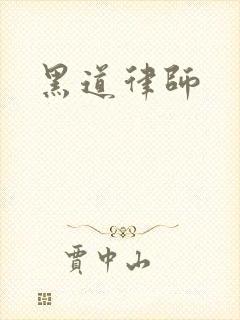 黑道律師
賈中山